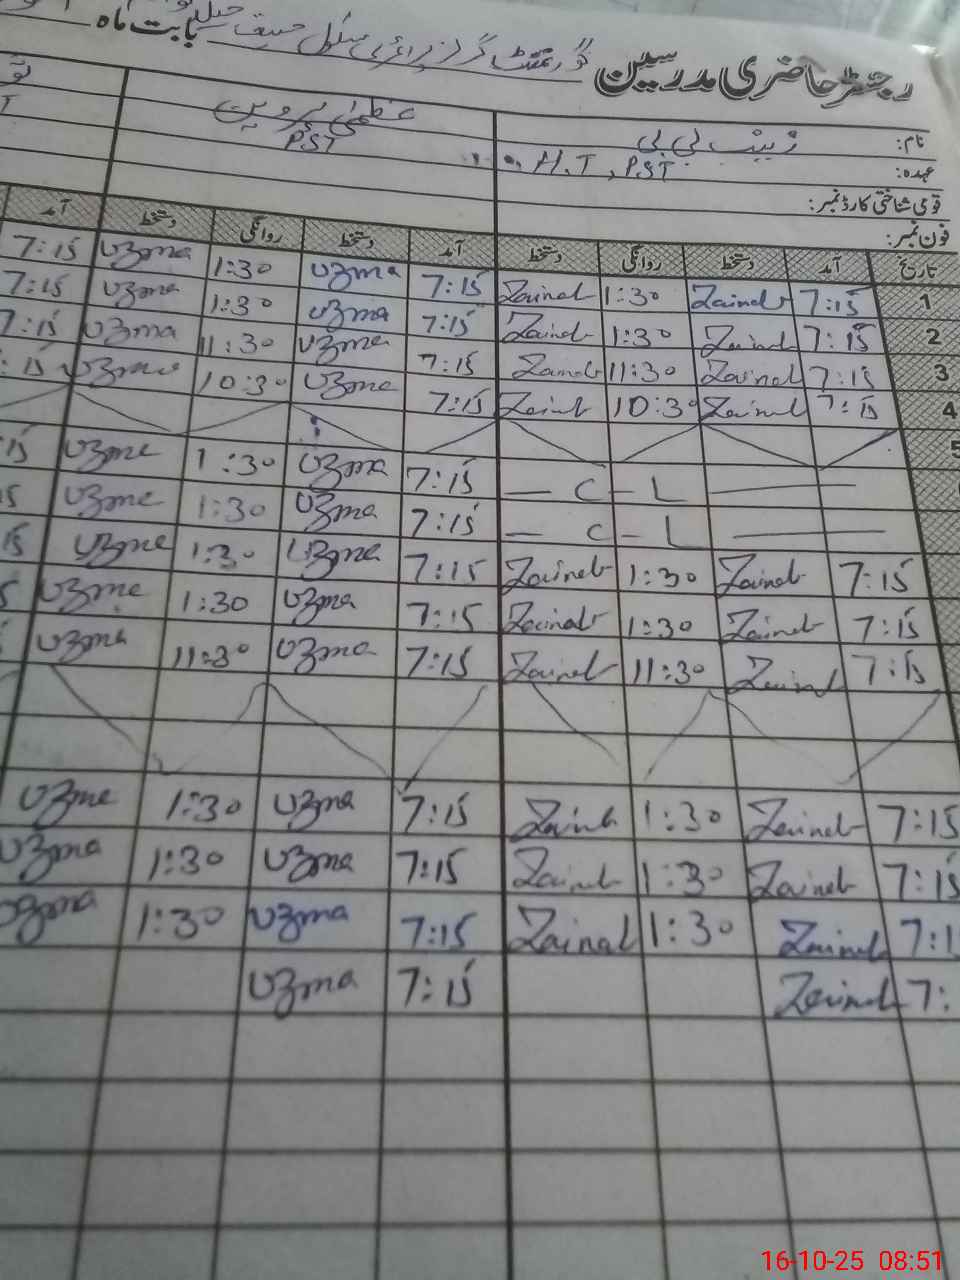 رجسٹر حاضری مدرسین گورنمنٹ گرلز پرائمری سکول بابت ماہ
نام: زینب بی بی عظمیٰ پروین
عہدہ: H.T, PST PST
قومی شناختی کارڈ نمبر:
فون نمبر:
تاریخ آمد دستخط روانگی دستخط آمد دستخط روانگی دستخط آمد
1 7:15 Zainab 1:30 Zainab 7:15 uzma 1:30 uzma 7:15
2 7:15 Zainab 1:30 Zainab 7:15 uzma 1:30 uzma 7:15
3 7:15 Zainab 11:30 Zainab 7:15 uzma 11:30 uzma 7:15
4 7:15 Zainab 10:30 Zainab 7:15 uzma 10:30 uzma :15
5
— C - L — 7:15 uzma 1:30 uzma 15
— C - L — 7:15 uzma 1:30 uzma 15
7:15 Zainab 1:30 Zainab 7:15 uzma 1:30 uzma 15
7:15 Zainab 1:30 Zainab 7:15 uzma 1:30 uzma 5
7:15 Zainab 11:30 Zainab 7:15 uzma 11:30 uzma
7:15 Zainab 1:30 Zainab 7:15 uzma 1:30 uzma
7:15 Zainab 1:30 Zainab 7:15 uzma 1:30 uzma
7:1 Zainab 1:30 Zainab 7:15 uzma 1:30 uzma
7: Zainab 7:15 uzma
16-10-25 08:51